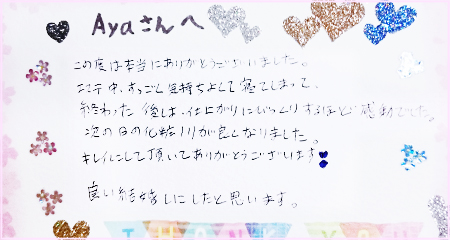 Ayaさんへ
この度は本当にありがとうございました。
すっごく気持ちよくて寝てしまって、
終わった後は、仕上がりにびっくりするほど感動でした。
次の日の化粧ノリが良くなりました。
キレイにして頂いてありがとうございます
良い結婚しにしたと思います。
THANK YOU